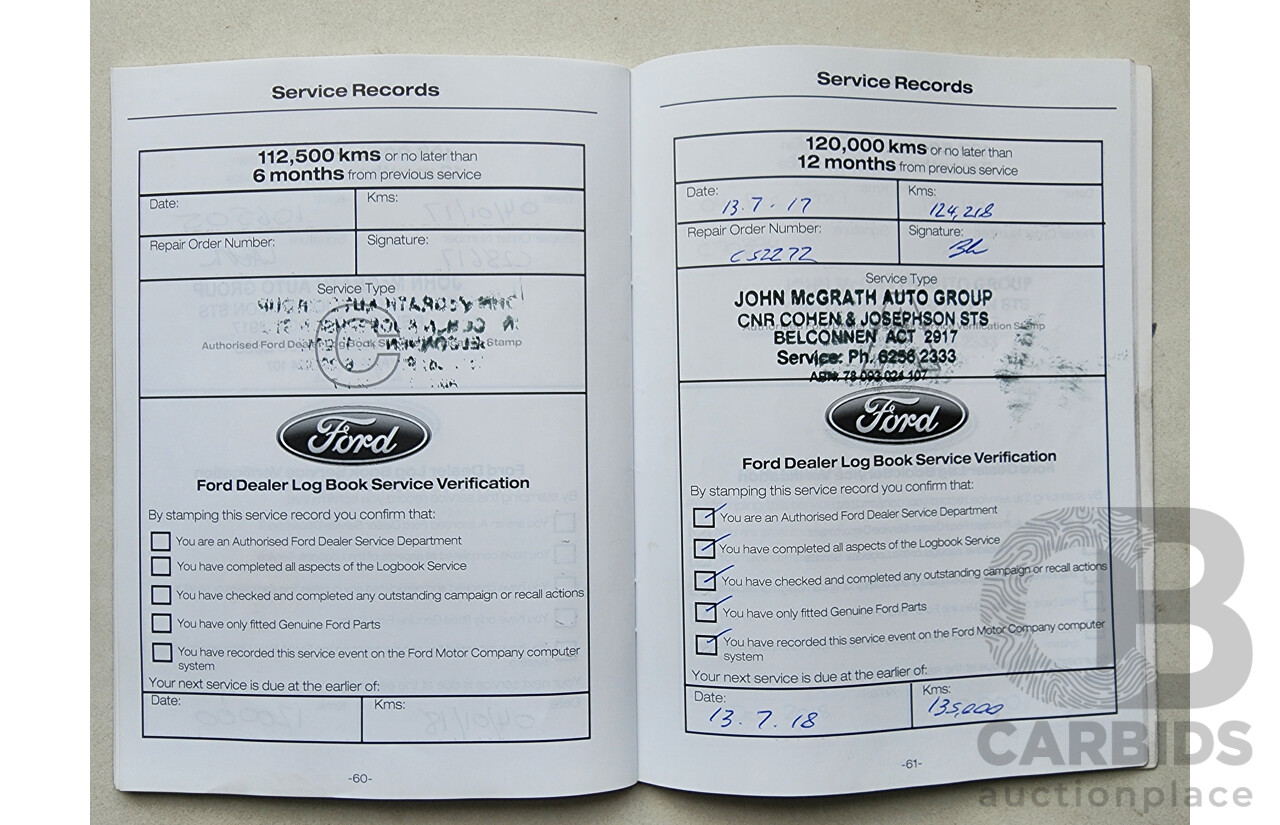 Service Records
112,500 kms or no later than
6 months from previous service
Date:
Kms:
Repair Order Number:
Signature:
Service Type
C
Authorised Ford Dealer Log Book Service Verification Stamp
Ford
Ford Dealer Log Book Service Verification
By stamping this service record you confirm that:
You are an Authorised Ford Dealer Service Department
You have completed all aspects of the Logbook Service
You have checked and completed any outstanding campaign or recall actions
You have only fitted Genuine Ford Parts
You have recorded this service event on the Ford Motor Company computer
system
Your next service is due at the earlier of:
Date:
Kms:
-60-
Service Records
120,000 kms or no later than
12 months from previous service
Date:
13.7.17
Kms:
124,218
Repair Order Number:
C52272
Signature:
Service Type
JOHN McGRATH AUTO GROUP
CNR COHEN & JOSEPHSON STS
BELCONNEN ACT 2917
Service: Ph. 6256 2333
ABN: 78 093 024 107
Ford
Ford Dealer Log Book Service Verification
By stamping this service record you confirm that:
You are an Authorised Ford Dealer Service Department
You have completed all aspects of the Logbook Service
You have checked and completed any outstanding campaign or recall actions
You have only fitted Genuine Ford Parts
You have recorded this service event on the Ford Motor Company computer
system
Your next service is due at the earlier of:
Date:
13.7.18
Kms:
135,000
-61-
CB
CARBIDS
auctionplace